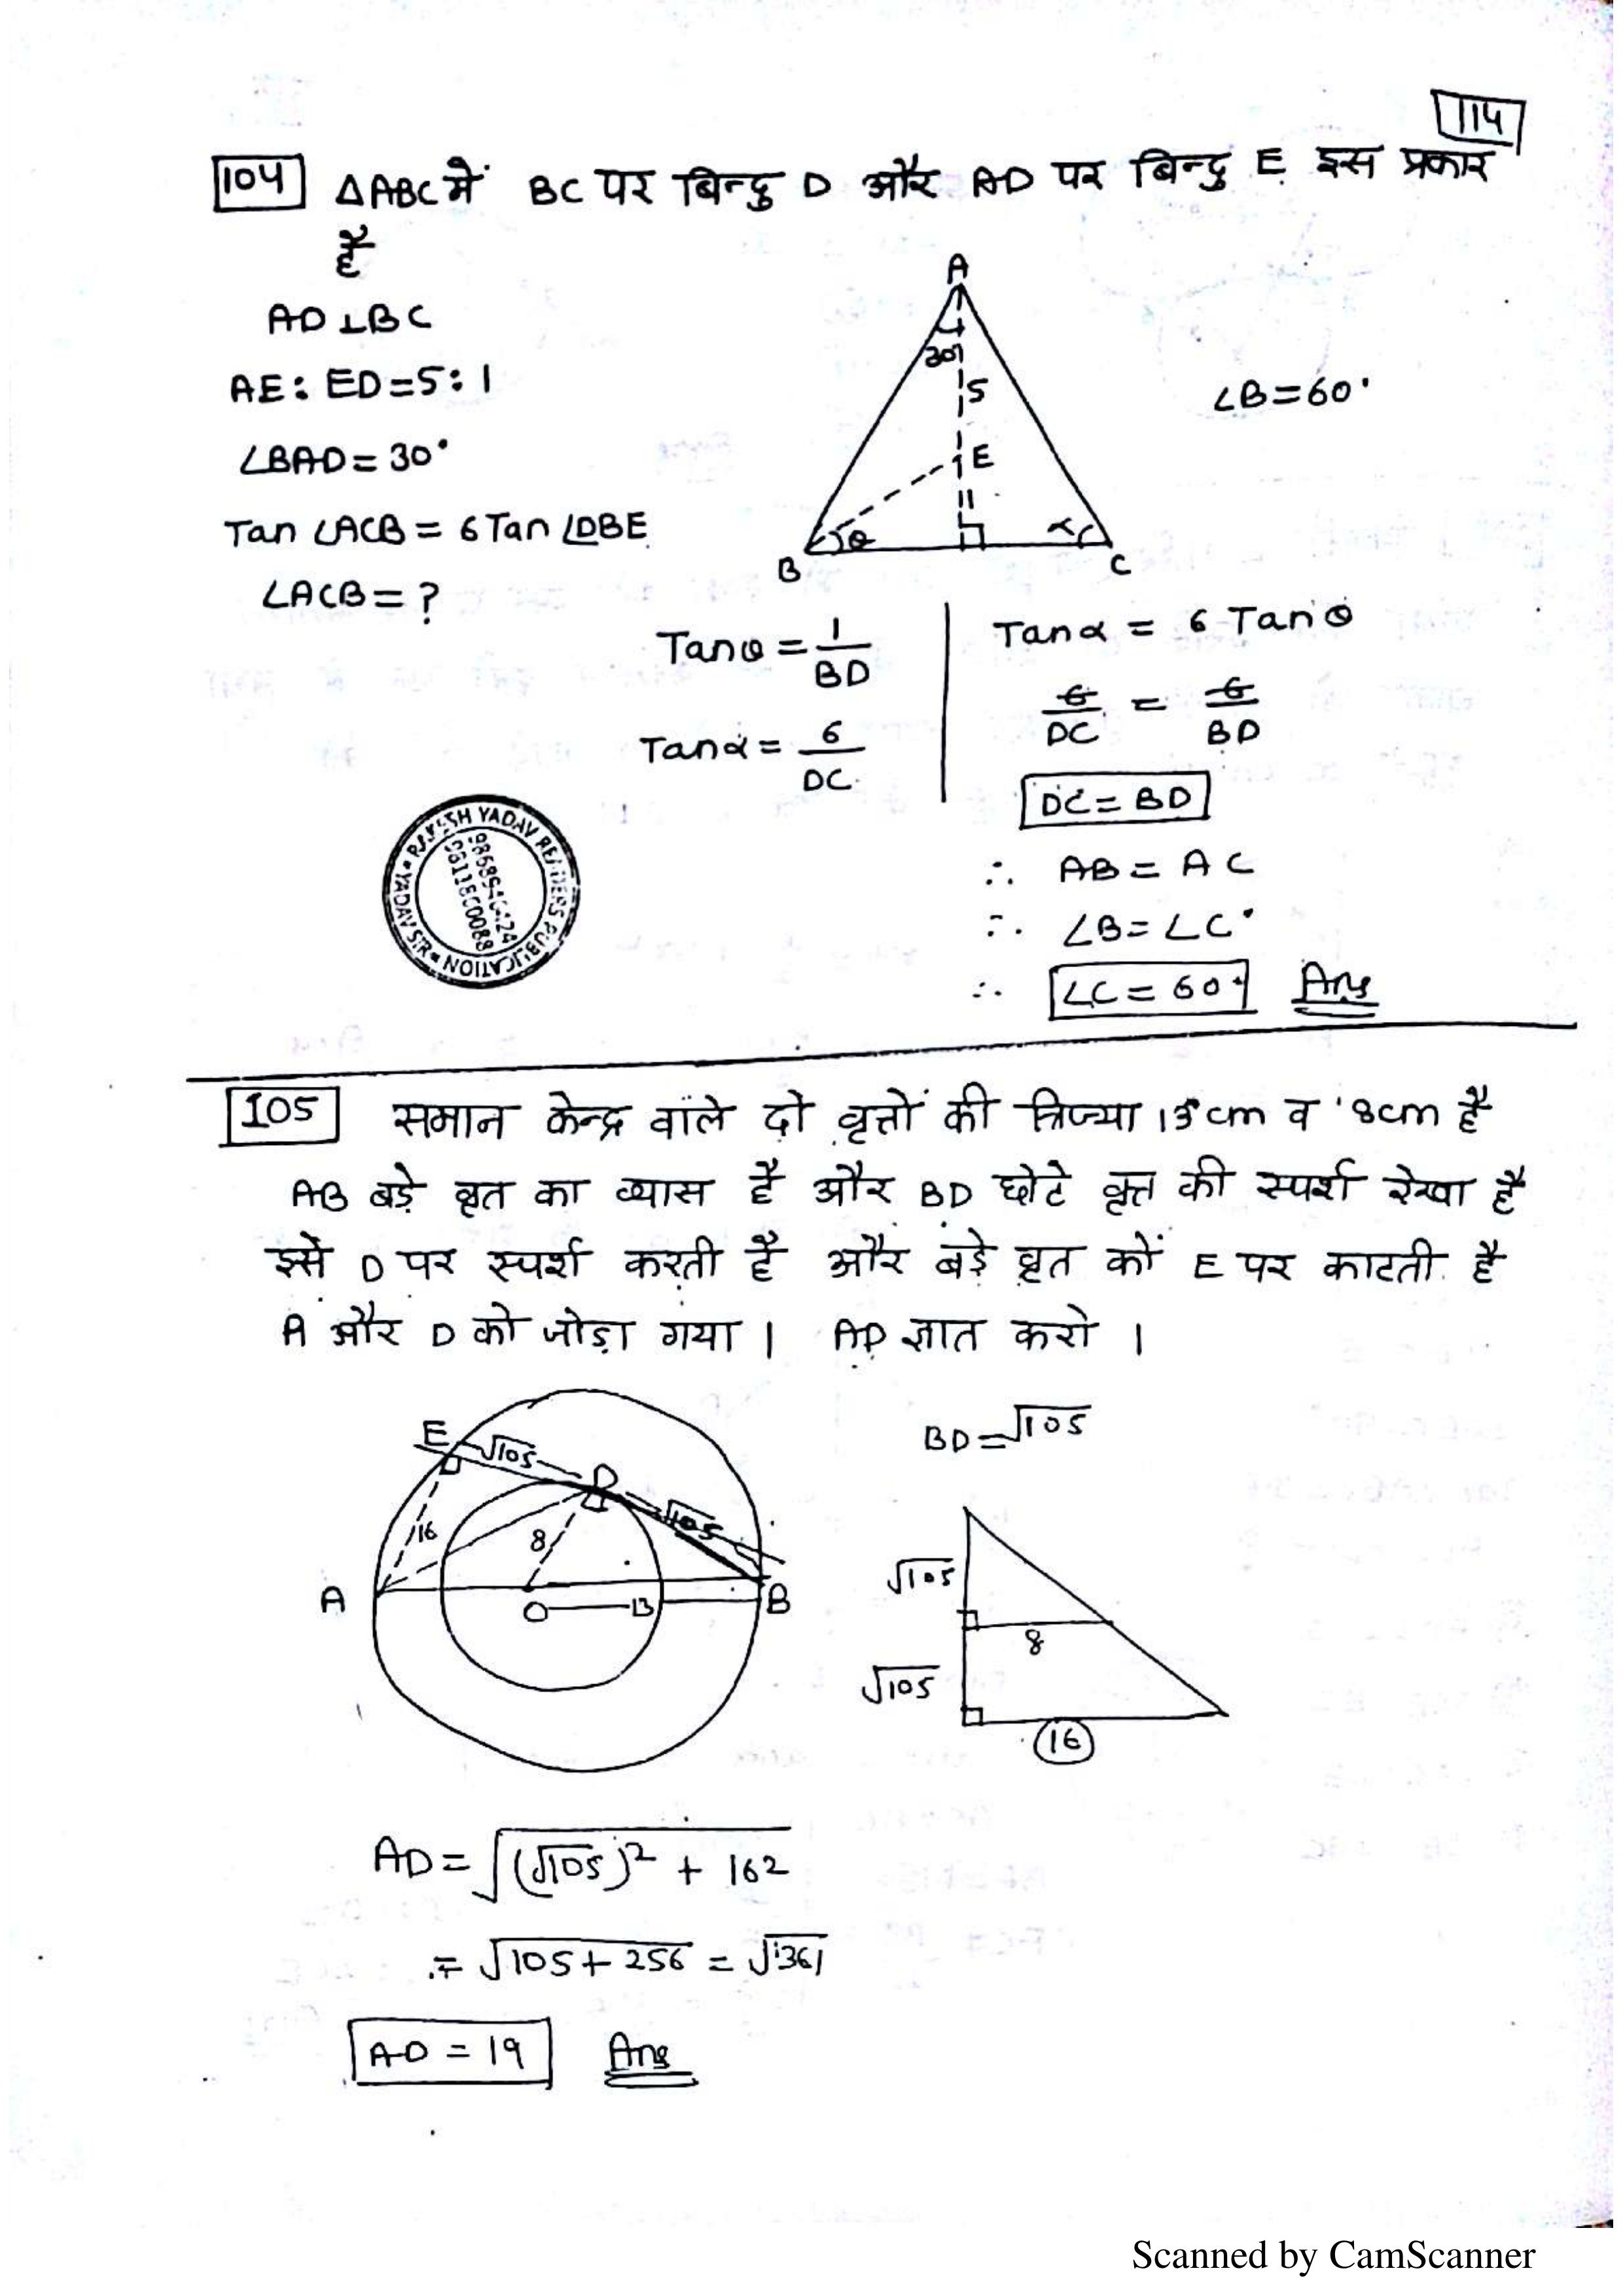 114
104 ΔABC में BC पर बिन्दु D और AD पर बिन्दु E इस प्रकार
है
AD⊥BC
AE: ED=5:1
∠BAD=30°
Tan ∠ACB = 6 Tan ∠DBE
∠ACB=?
A
30°
5
E
1
θ
α
B
C
∠B=60°
Tanθ = 1/BD
Tanα = 6/DC
Tanα = 6 Tanθ
6/DC = 6/BD
DC=BD
∴ AB = AC
∴ ∠B=∠C
∴ ∠C = 60° Ans
RAKESH YADAV READERS PUBLICATION
YADAV SIR
105 समान केन्द्र वाले दो वृत्तों की त्रिज्या 13cm व 8cm है
AB बड़े वृत का व्यास है और BD छोटे वृत्त की स्पर्श रेखा है
इसे D पर स्पर्श करती है और बड़े वृत को E पर काटती है
A और D को जोड़ा गया । AD ज्ञात करो ।
E
√105
D
√105
16
8
A
O
13
B
BD=√105
√105
8
√105
16
AD=√(√105)² + 162
= √105+256 = √361
AD = 19 Ans
Scanned by CamScanner